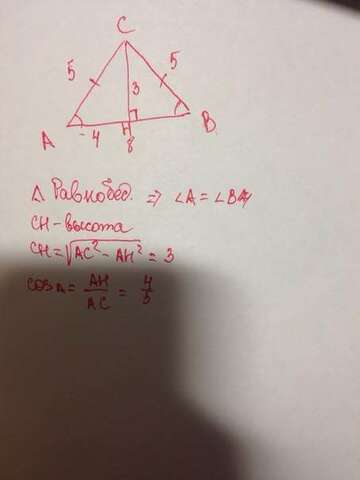 C
5 5
3
A B
4
H
8
△ Равнобед. => ∠A = ∠B
CH - высота
CH = √AC² - AH² = 3
cos A = AH/AC = 4/5